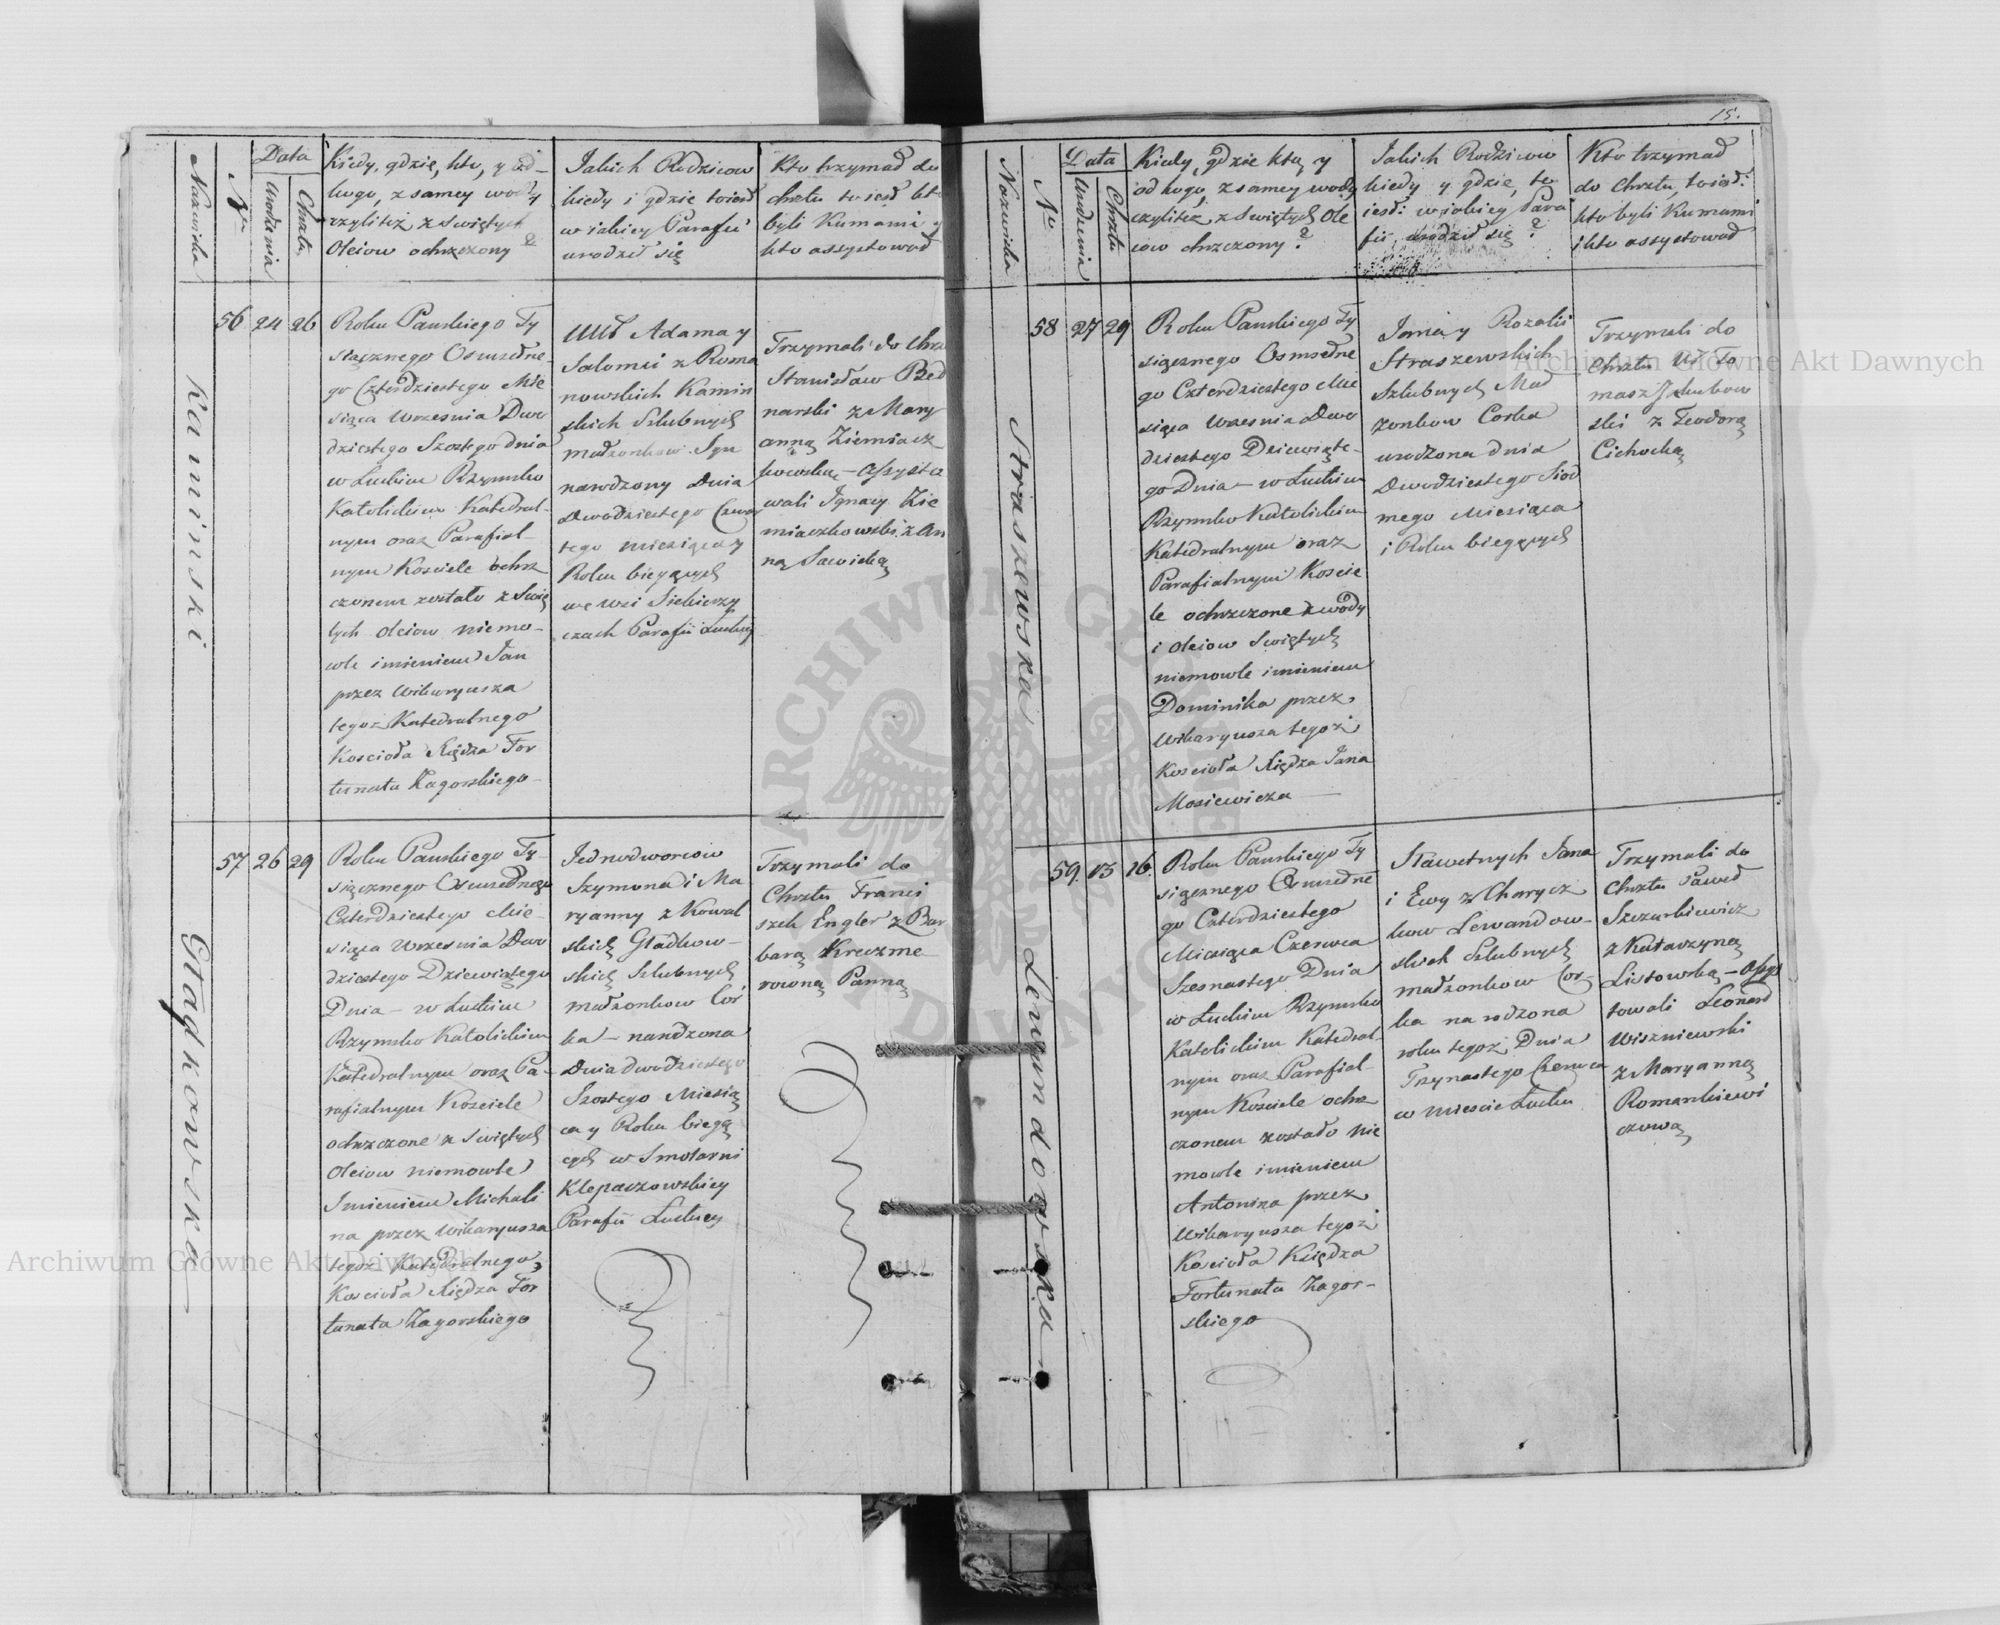 Nazwiska
Nr
Data
Urodzenia
Chrztu
Kiedy, gdzie, kto, y od
kogo, z samey wody
czyliteż z Swiętych
Oleiow ochrzczony?
Jakich Rodzicow
kiedy i gdzie to iest
w iakiey Parafii
urodził się
Kto trzymał do
chrztu to iest kto
byli Kumami y
kto assystował
Kaminski
56
24
26
Roku Panskiego Ty
siącznego Osmsetne-
go Czterdziestego Mie
siąca Wrzesnia Dwo
dziestego Szostego dnia
w Łuckim Rzymsko
Katolickim Katedral-
nym oraz Parafial-
nym Kosciele ochrz
czonem zostało z Swię
tych Oleiow niemo-
wle imieniem Jan
przez Wikaryusza
tegoż Katedralnego
Kościoła Xiędza For
tunata Zagorskiego-
Adama y
Salomei z Roma
nowskich Kamin
skich Szlubnych
małżonkow Syn
narodzony Dnia
Dwodziestego Czwar
tego miesiąca y
Roku bieżących
we wsi Siekierzy
czach Parafii Łuckiey
Trzymali do Chrz
Stanisław Bed
narski z Mary
anną Ziemiacz-
kowską - Assysto
wali Ignacy Zie
miaczkowski z An
ną Sawicką
Gładkowska
57
26
29
Roku Panskiego Ty-
siącznego Osmsetnego
Czterdziestego Mie-
siąca Wrzesnia Dwo
dziestego Dziewiątego
Dnia - w Łuckim
Rzymsko Katolickim
Katedralnym oraz Pa-
rafialnym Kosciele
ochrzczone z Swiętych
Oleiow niemowle
Imieniem Michali
na przez Wikaryusza
tegoż Katedralnego
Kościoła Xiędza For
tunata Zagorskiego
Jednodworcow
Szymona i Ma
ryanny z Kowal
skich Gładkow-
skich Szlubnych
małżonkow Cor
ka - narodzona
Dnia dwodziestego
Szostego Miesią
ca y Roku bieżą
cych w Smolarni
Klepaczowskiey
Parafii Łuckiey
Trzymali do
Chrztu Franci
szek Engler z Bar
barą Kreczme
rowną Panną
15.
Nazwiska
Nr
Data
Urodzenia
Chrztu
Kiedy, gdzie kto, y
od kogo, z samey wody
czyliteż z Swiętych Ole
iow chrzczony?
Jakich Rodzicow
kiedy y gdzie, to
iest: w iakiey Para
fii, urodził się?
Kto trzymał
do Chrztu, to iest:
kto byli Kumami
i kto assystował
Straszewska
58
27
29
Roku Panskiego Ty
siącznego Osmsetne
go Czterdziestego Mie
siąca Wrzesnia Dwo
dziestego Dziewiąte-
go Dnia - w Łuckim
Rzymsko Katolickim
Katedralnym oraz
Parafialnym Koscie
le ochrzczone z wody
i Oleiow Swiętych
niemowle imieniem
Dominika przez
Wikaryusza tegoż
Kościoła Xiędza Jana
Mosiewicza
Jana y Rozalii
Straszewskich
Szlubnych Mał
żonkow Corka
urodzona dnia
Dwodziestego Siod
mego Miesiąca
i Roku bieżących
Trzymali do
Chrztu To
masz Jakubow
ski z Teodorą
Cichocką
Lewandowska
59.
13
16.
Roku Panskiego Ty
siącznego Osmsetne
go Czterdziestego
Miesiąca Czerwca
Szesnastego Dnia
w Łuckim Rzymsko
Katolickim Katedral-
nym oraz Parafial-
nym Kosciele ochrz
czonem zostało nie
mowle imieniem
Antonina przez
Wikaryusza tegoż
Kościoła Księdza
Fortunata Zagor-
skiego
Jana
i Ewy z Charycz
kow Lewandow-
skich Szlubnych
małżonkow Cor-
ka narodzona
roku tegoż Dnia
Trzynastego Czerwca
w miescie Łucku
Trzymali do
Chrztu Paweł
Szczurkiewicz
z Katarzyną
Listowską - Assys
towali Leonard
Wiszniewski
z Maryanną
Romankiewi
czową
Archiwum Główne Akt Dawnych
Archiwum Główne Akt Dawnych
ARCHIWUM GŁÓWNE AKT DAWNYCH